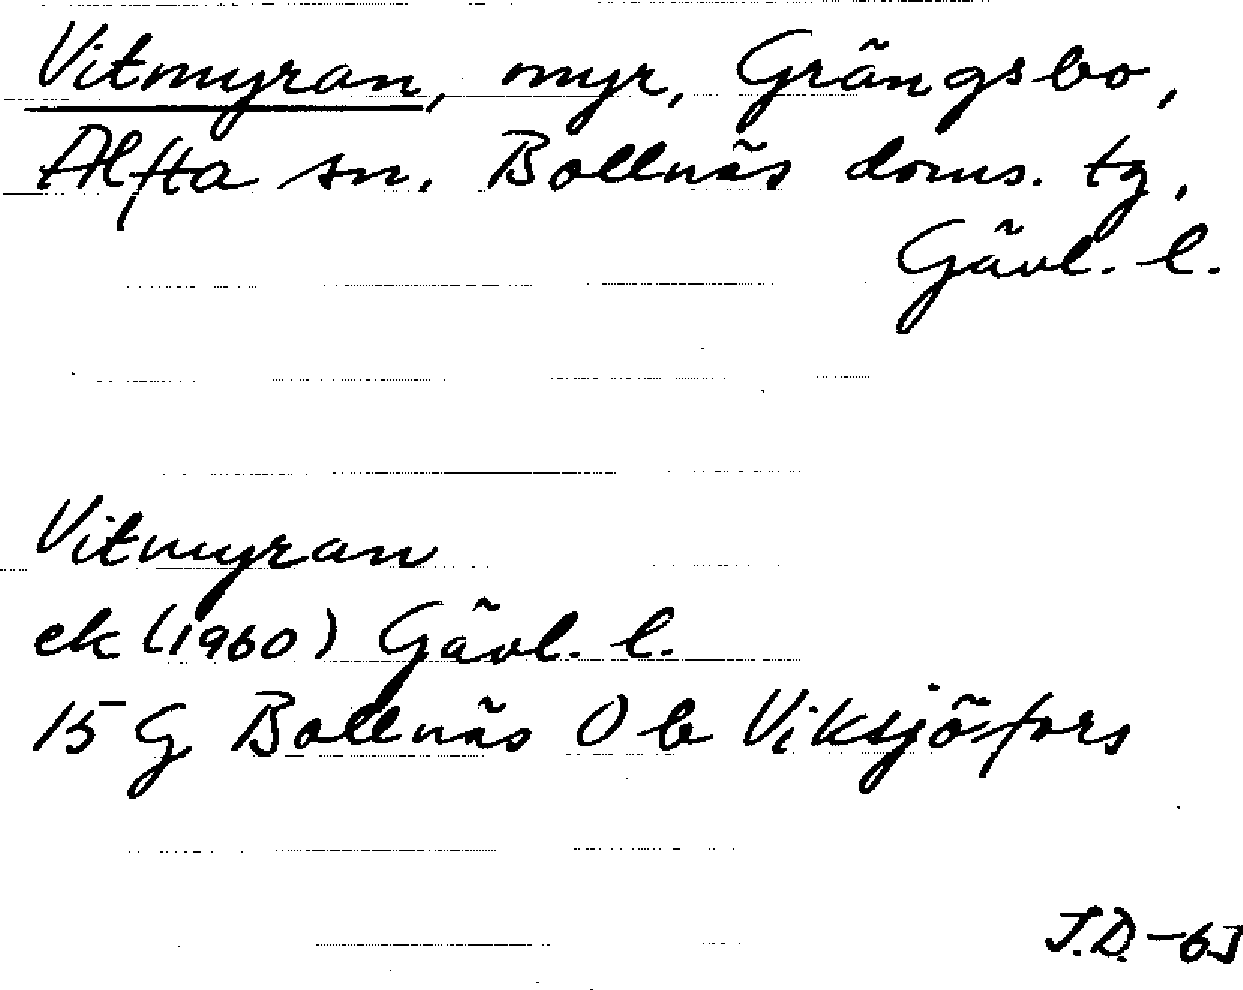 Vitmyran, myr, Grängsbo,
Alfta sn. Bollnäs doms. tg,
Gävl. l.
Vitmyran
ek (1960) Gävl. l.
15 G Bollnäs O b Viksjöfors